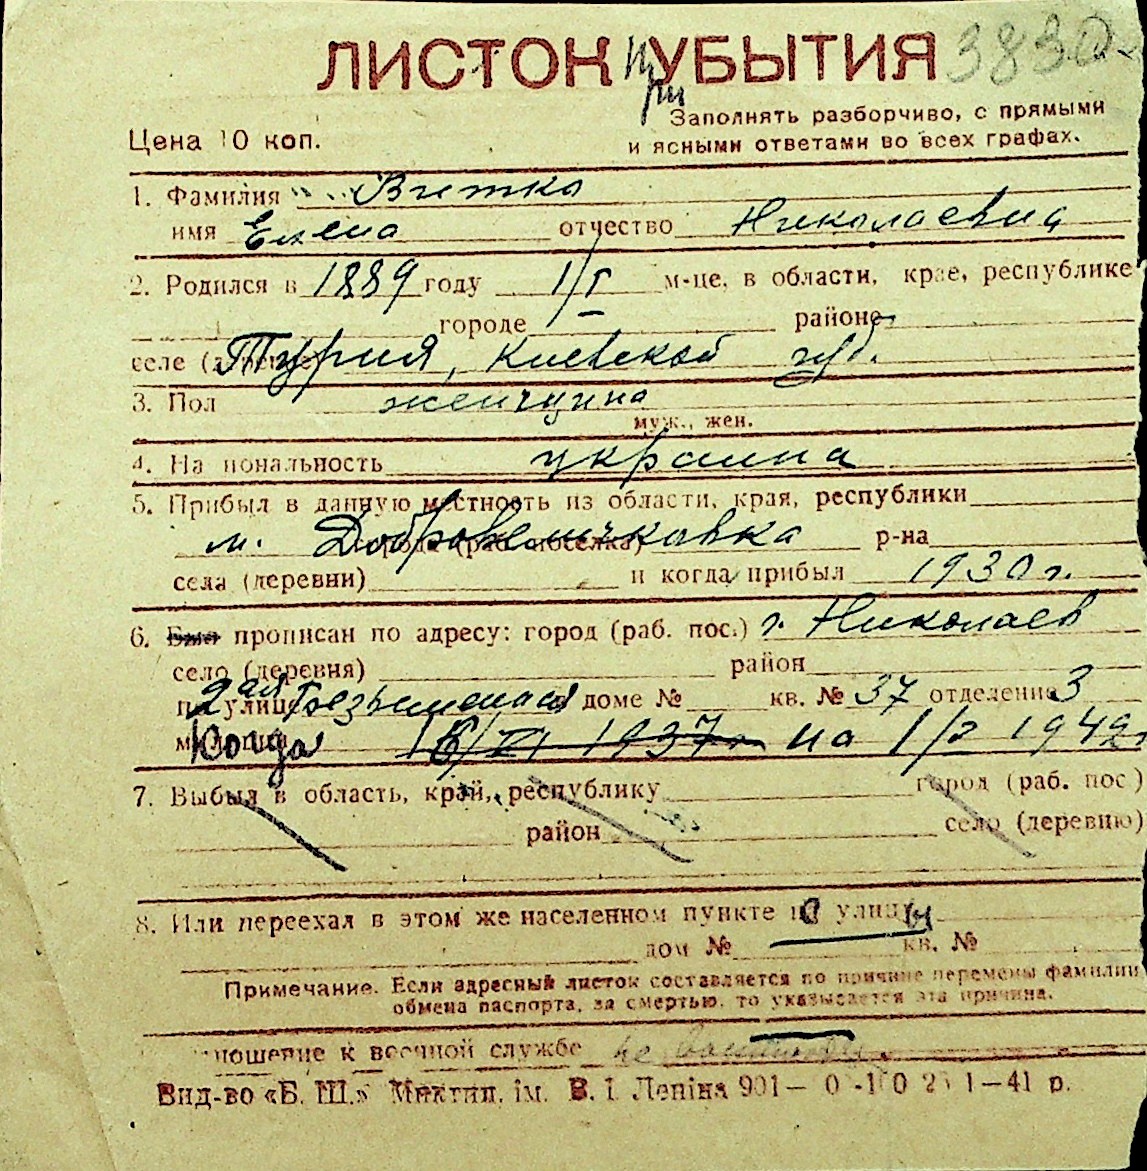 ЛИСТОК УБЫТИЯ 3830
при
Заполнять разборчиво, с прямыми
Цена 10 коп. и ясными ответами во всех графах.
1. Фамилия Витко
имя Елена отчество Николаевна
2. Родился в 1889 году 1/I м-це, в области, крае, республике
городе районе
селе (деревне) Турия, Киевской губ.
3. Пол женщина
муж., жен.
4. Национальность украинка
5. Прибыл в данную местность из области, края, республики
м. Добровеличковка р-на
города (раб. поселка)
села (деревни) и когда прибыл 1930 г.
6. Был прописан по адресу: город (раб. пос.) г. Николаев
село (деревня) район
по улице 2ая Безыменная доме № кв. № 37 отделение 3
милиции Когда 16/VI 1937 г. на 1/2 1942 г.
7. Выбыл в область, край, республику город (раб. пос)
район село (деревню)
8. Или переехал в этом же населенном пункте на улицу
дом № кв. №
Примечание. Если адресный листок составляется по причине перемены фамилии
обмена паспорта, за смертью, то указывается эта причина.
Отношение к военной службе
Вид-во «Б. Ш.» Миктип. ім. В. І. Леніна 901— 0 -10 2 1—41 р.